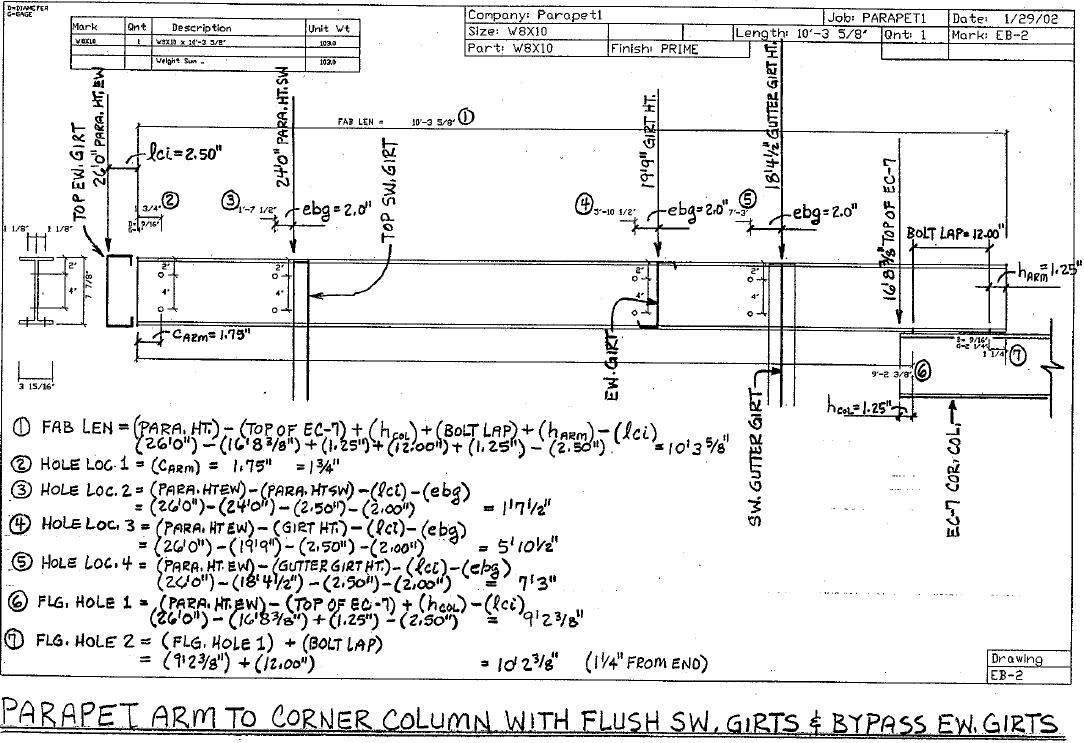 D=DIAMETER
G=GAGE
Mark Qnt Description Unit Wt
W8X10 1 W8X10 x 10'-3 5/8" 103.0
Weight Sum = 103.0
Company: Parapet1 Job: PARAPET1 Date: 1/29/02
Size: W8X10 Length: 10'-3 5/8" Qnt: 1 Mark: EB-2
Part: W8X10 Finish: PRIME
FAB LEN = 10'-3 5/8" ①
TOP EW. GIRT
26'0" PARA. HT. EW
lci = 2.50"
24'0" PARA. HT. SW
TOP SW. GIRT
19'9" GIRT HT.
18'4½" GUTTER GIRT HT.
16'8⅜" TOP OF EC-7
1 3/4" ②
D= 9/16"
G=
③ 1'-7 1/2" ebg = 2.0"
④ 5'-10 1/2" ebg = 2.0"
⑤ 7'-3" ebg = 2.0"
BOLT LAP = 12.00"
hARM = 1.25"
1 1/8" 1 1/8"
2" 4" 7 7/8"
2" 4"
2" 4"
2" 4"
2" 4"
3 15/16"
CARM = 1.75"
EW. GIRT
SW. GUTTER GIRT
D= 9/16"
G=2 1/4"
1 1/4" ⑦
9'-2 3/8" ⑥
hCOL = 1.25"
EC-7 COR. COL.
① FAB LEN = (PARA. HT.) - (TOP OF EC-7) + (hCOL) + (BOLT LAP) + (hARM) - (lci)
(26'0") - (16'8⅜") + (1.25") + (12.00") + (1.25") - (2.50") = 10'3⅝"
② HOLE LOC. 1 = (CARM) = 1.75" = 1¾"
③ HOLE LOC. 2 = (PARA. HT EW) - (PARA. HT SW) - (lci) - (ebg)
= (26'0") - (24'0") - (2.50") - (2.00") = 1'7½"
④ HOLE LOC. 3 = (PARA. HT EW) - (GIRT HT.) - (lci) - (ebg)
= (26'0") - (19'9") - (2.50") - (2.00") = 5'10½"
⑤ HOLE LOC. 4 = (PARA. HT. EW) - (GUTTER GIRT HT.) - (lci) - (ebg)
(26'0") - (18'4½") - (2.50") - (2.00") = 7'3"
⑥ FLG. HOLE 1 = (PARA. HT. EW) - (TOP OF EC-7) + (hCOL) - (lci)
(26'0") - (16'8⅜") + (1.25") - (2.50") = 9'2⅜"
⑦ FLG. HOLE 2 = (FLG. HOLE 1) + (BOLT LAP)
= (9'2⅜") + (12.00") = 10'2⅜" (1¼" FROM END)
Drawing
EB-2
PARAPET ARM TO CORNER COLUMN WITH FLUSH SW. GIRTS & BYPASS EW. GIRTS